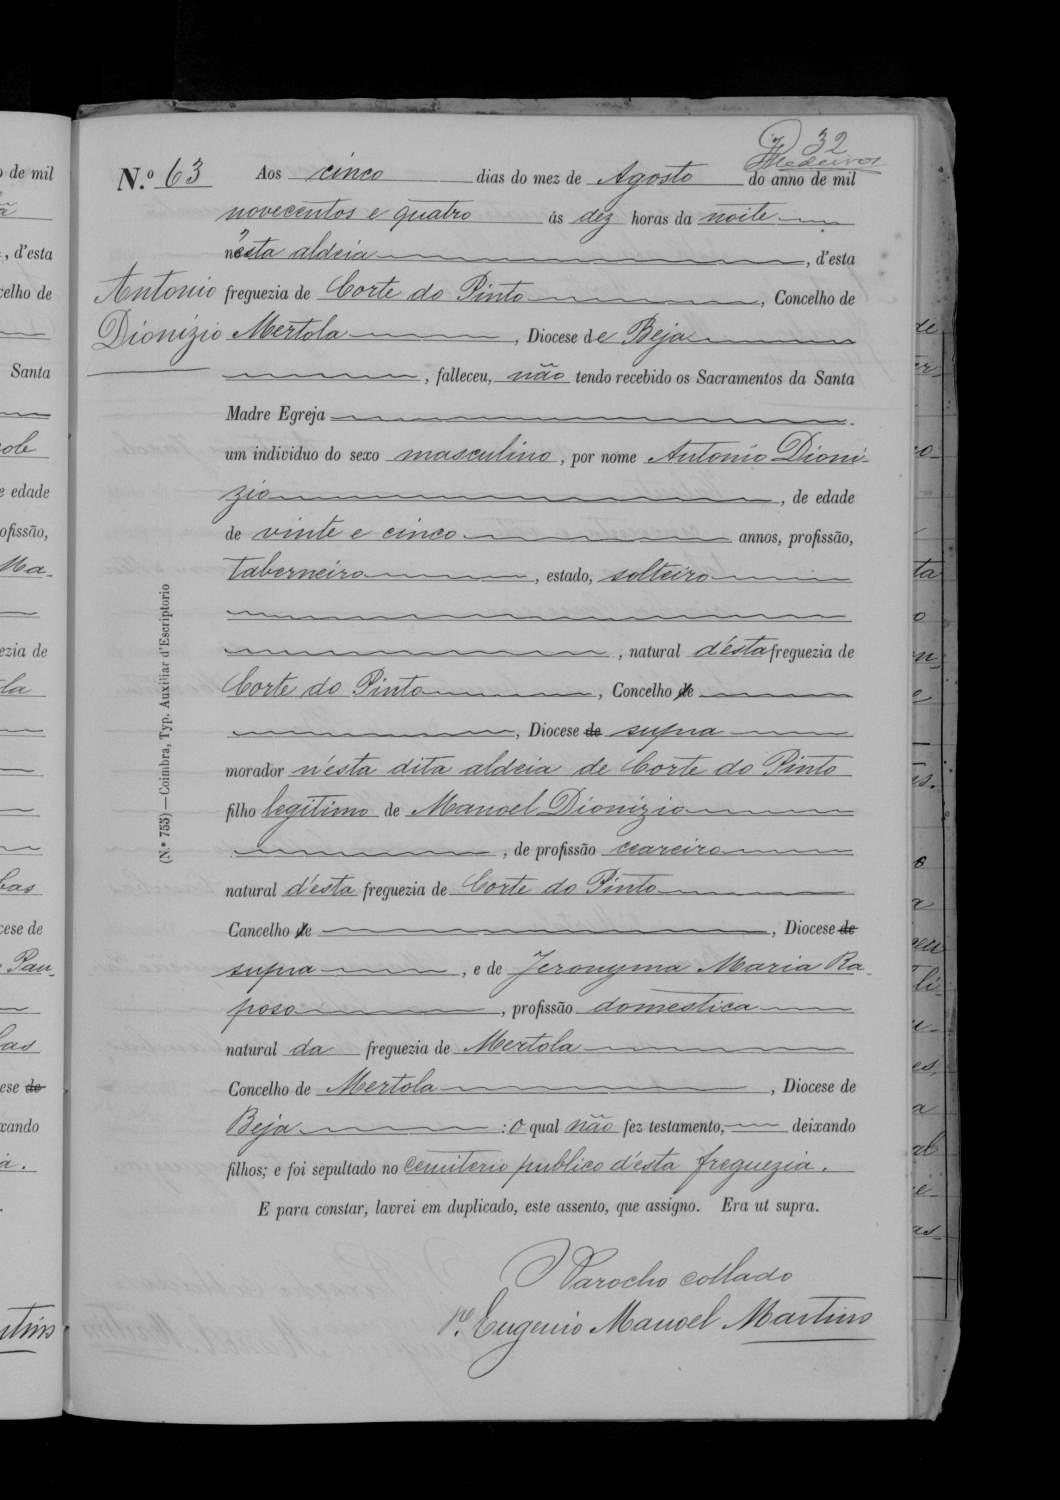 32
Medeiros
N.º 63 Aos cinco dias do mez de Agosto do anno de mil
novecentos e quatro ás dez horas da noite
n'esta aldeia, d'esta
Antonio freguezia de Corte do Pinto, Concelho de
Dionizio Mertola, Diocese de Beja
, falleceu, não tendo recebido os Sacramentos da Santa
Madre Egreja.
um individuo do sexo masculino, por nome Antonio Dioni-
zio, de edade
de vinte e cinco annos, profissão,
taberneiro, estado, solteiro
, natural d'esta freguezia de
Corte do Pinto, Concelho de
, Diocese de supra
morador n'esta dita aldeia de Corte do Pinto
filho legitimo de Manoel Dionizio
, de profissão ceareiro
natural d'esta freguezia de Corte do Pinto
Cancelho de, Diocese de
supra, e de Jeronyma Maria Ra-
poso, profissão domestica
natural da freguezia de Mertola
Concelho de Mertola, Diocese de
Beja: o qual não fez testamento, deixando
filhos; e foi sepultado no cemiterio publico d'esta freguezia.
E para constar, lavrei em duplicado, este assento, que assigno. Era ut supra.
O Parocho collado
Pe. Eugenio Manoel Martins
(N.º 753)—Coimbra, Typ. Auxiliar d'Escriptorio
o de mil
, d'esta
celho de
Santa
e edade
ofissão,
Ma-
ezia de
la
bas
cese de
Pau-
ese de
xando
a.
rtins